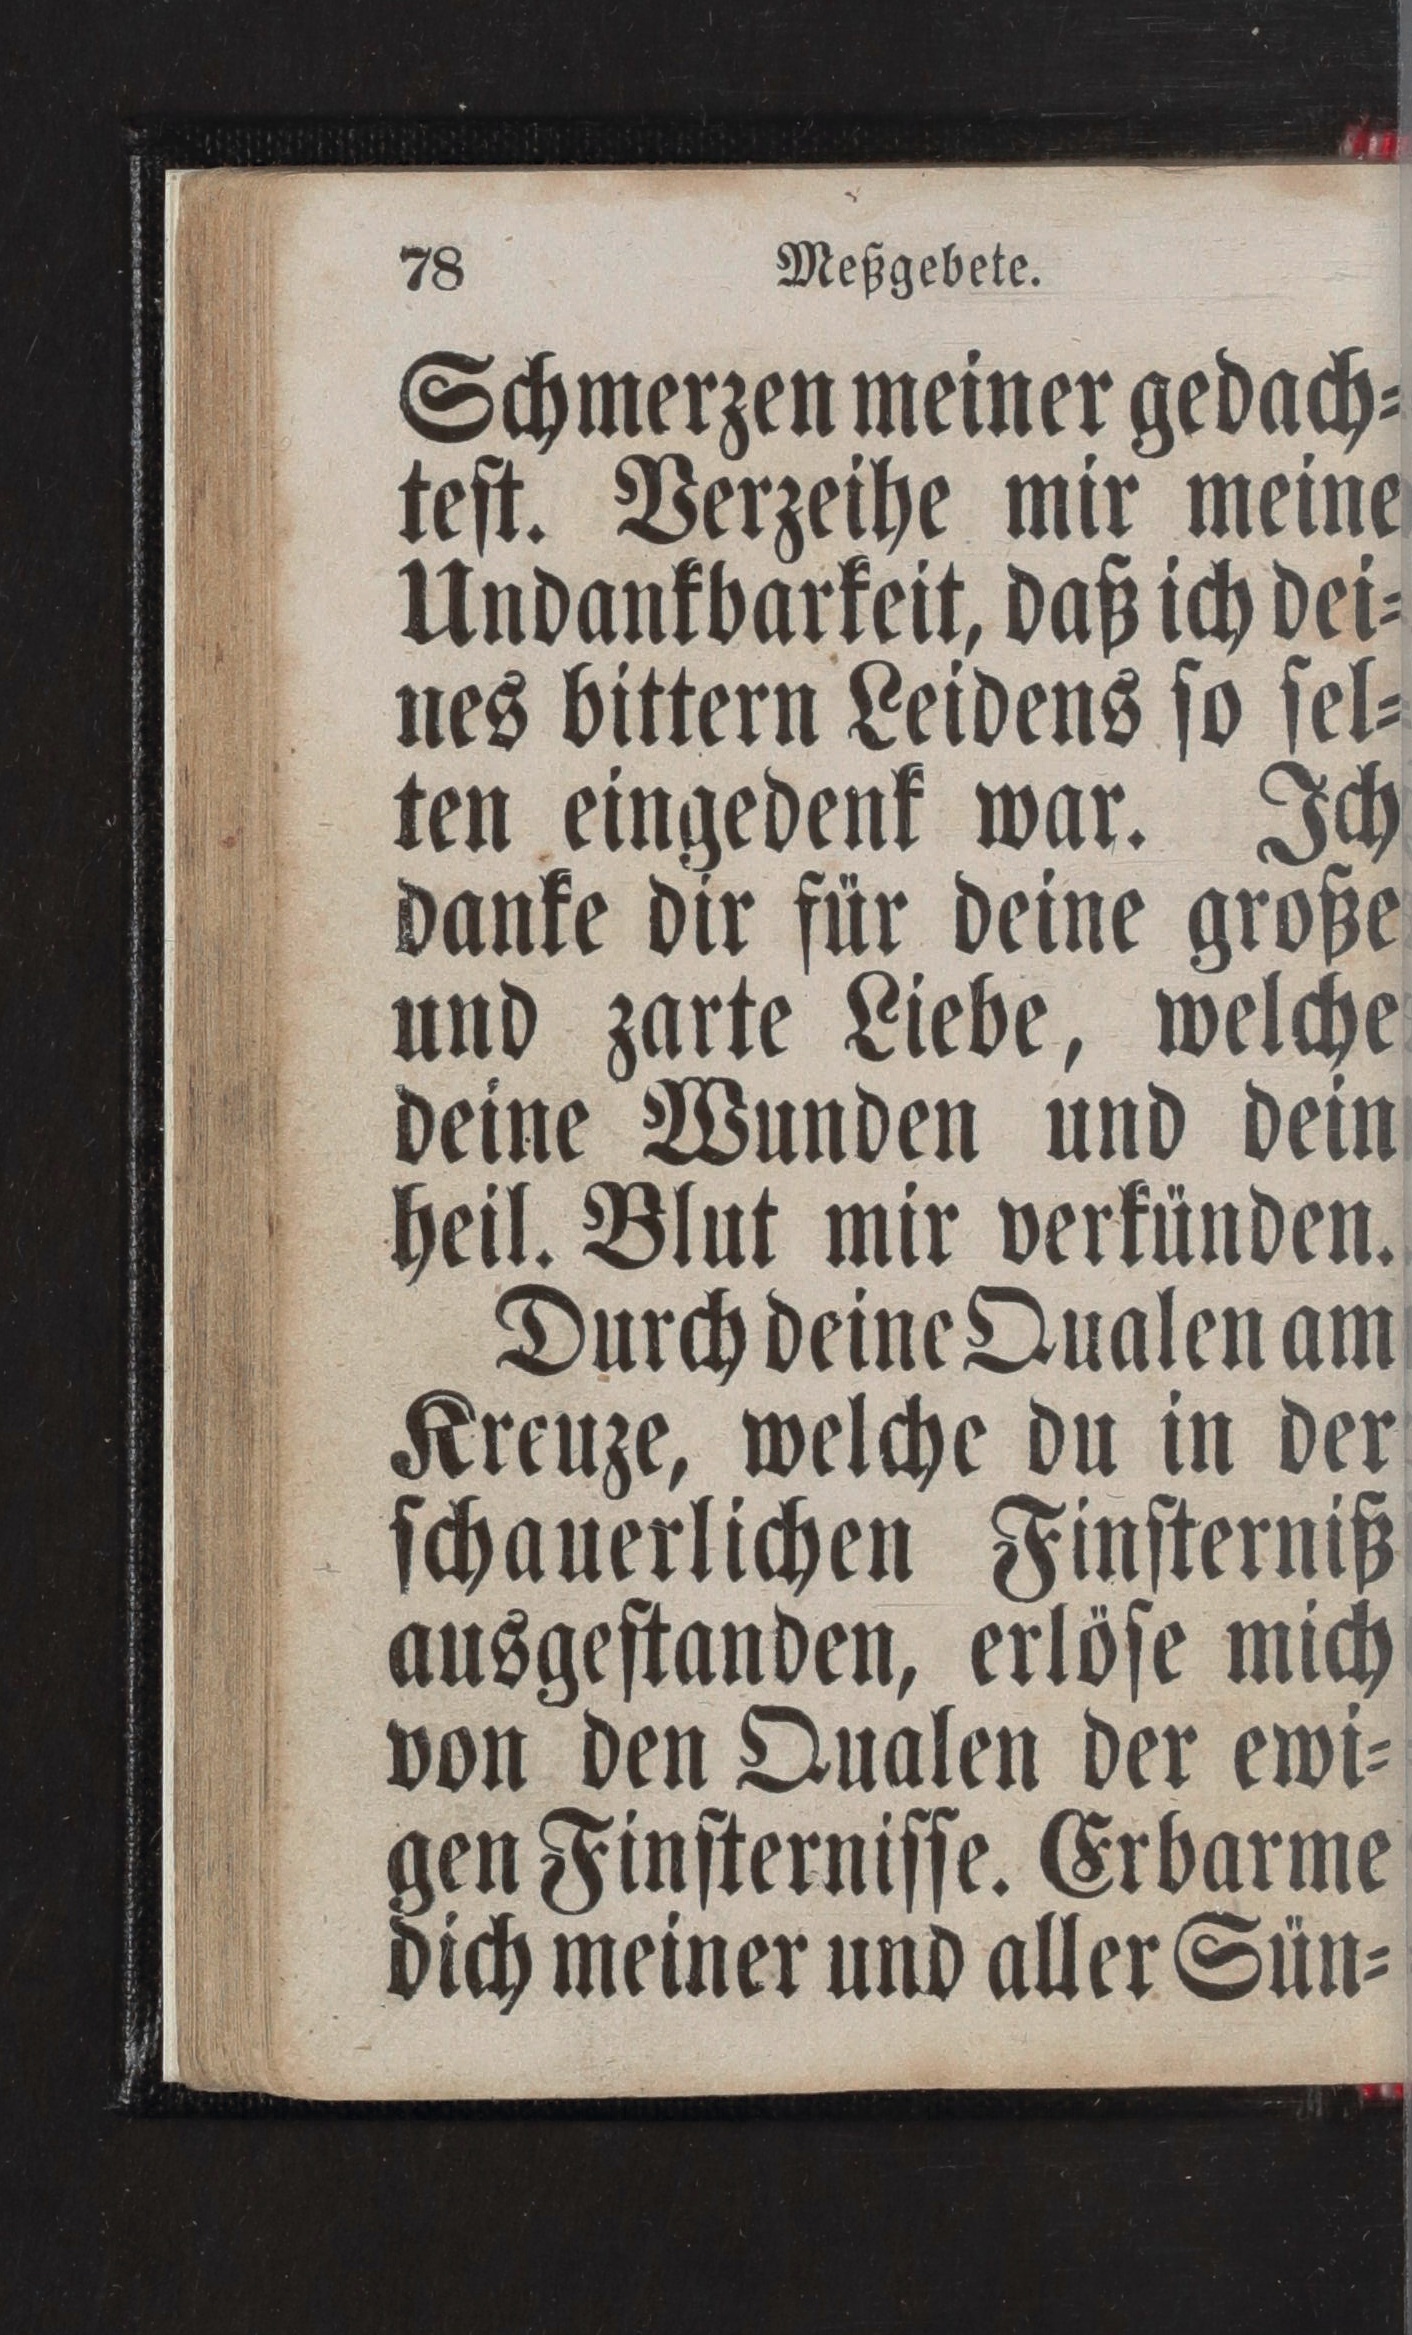 78 Meßgebete.
Schmerzen meiner gedach-
test. Verzeihe mir meine
Undankbarkeit, daß ich dei-
nes bittern Leidens so sel-
ten eingedenk war. Ich
danke dir für deine große
und zarte Liebe, welche
deine Wunden und dein
heil. Blut mir verkünden.
Durch deine Qualen am
Kreuze, welche du in der
schauerlichen Finsterniß
ausgestanden, erlöse mich
von den Qualen der ewi-
gen Finsternisse. Erbarme
dich meiner und aller Sün-